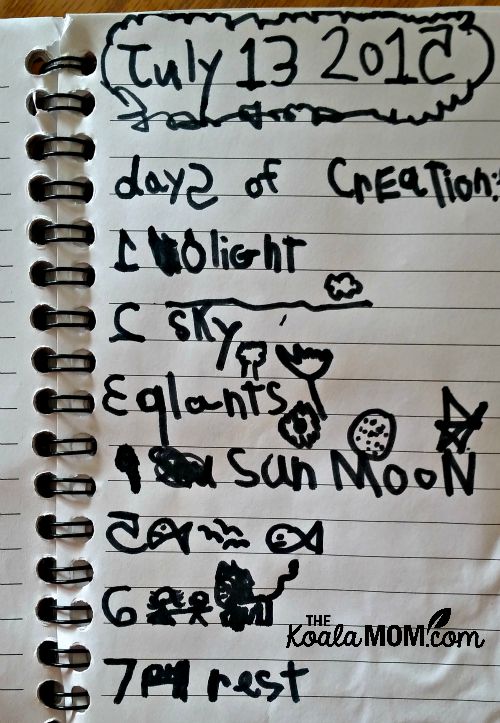 July 13 2015
days of Creation:
1 light
2 sky
3 qlants
sun Moon
5
6
THE Koala MOM.com
7 rest